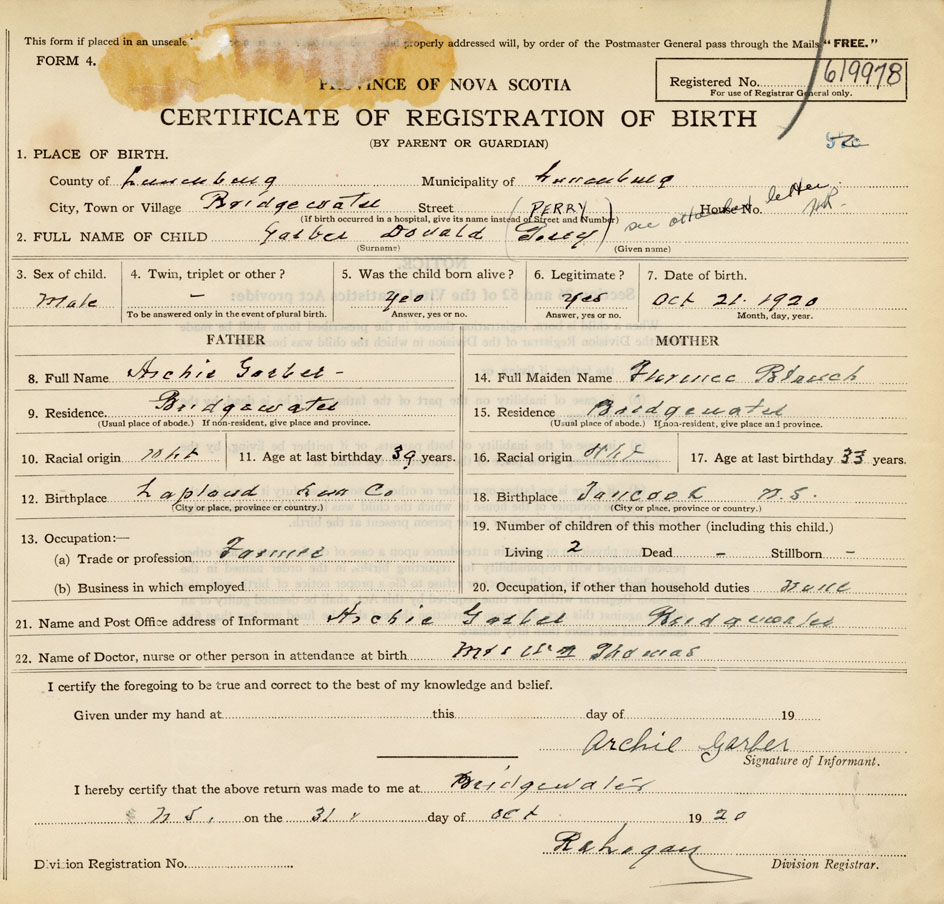 This form if placed in an unseale properly addressed will, by order of the Postmaster General pass through the Mails "FREE."
FORM 4.
PROVINCE OF NOVA SCOTIA
Registered No. 619978
For use of Registrar General only.
CERTIFICATE OF REGISTRATION OF BIRTH
(BY PARENT OR GUARDIAN)
1. PLACE OF BIRTH.
County of Lunenburg Municipality of Lunenburg
City, Town or Village Bridgewater Street House No.
(If birth occurred in a hospital, give its name instead of Street and Number)
(PERRY) see attached letter
2. FULL NAME OF CHILD Garber Donald (Perry)
(Surname) (Given name)
3. Sex of child. 4. Twin, triplet or other? 5. Was the child born alive? 6. Legitimate? 7. Date of birth.
Male – Yes Yes Oct 21. 1920
To be answered only in the event of plural birth. Answer, yes or no. Answer, yes or no. Month, day, year.
FATHER MOTHER
8. Full Name Archie Garber - 14. Full Maiden Name Florence
9. Residence. Bridgewater 15. Residence Bridgewater
(Usual place of abode.) If non-resident, give place and province. (Usual place of abode.) If non-resident, give place and province.
10. Racial origin Wht 11. Age at last birthday 39 years. 16. Racial origin Wht 17. Age at last birthday 33 years.
12. Birthplace Lapland Lun Co 18. Birthplace Tancook N.S.
(City or place, province or country.) (City or place, province or country.)
13. Occupation:— 19. Number of children of this mother (including this child.)
(a) Trade or profession Farmer Living 2 Dead – Stillborn –
(b) Business in which employed 20. Occupation, if other than household duties None
21. Name and Post Office address of Informant Archie Garber Bridgewater
22. Name of Doctor, nurse or other person in attendance at birth Mrs Wm Thomas
I certify the foregoing to be true and correct to the best of my knowledge and belief.
Given under my hand at this day of 19
Archie Garber
Signature of Informant.
I hereby certify that the above return was made to me at Bridgewater
N S. on the 31 day of Oct 1920
Division Registration No. Division Registrar.